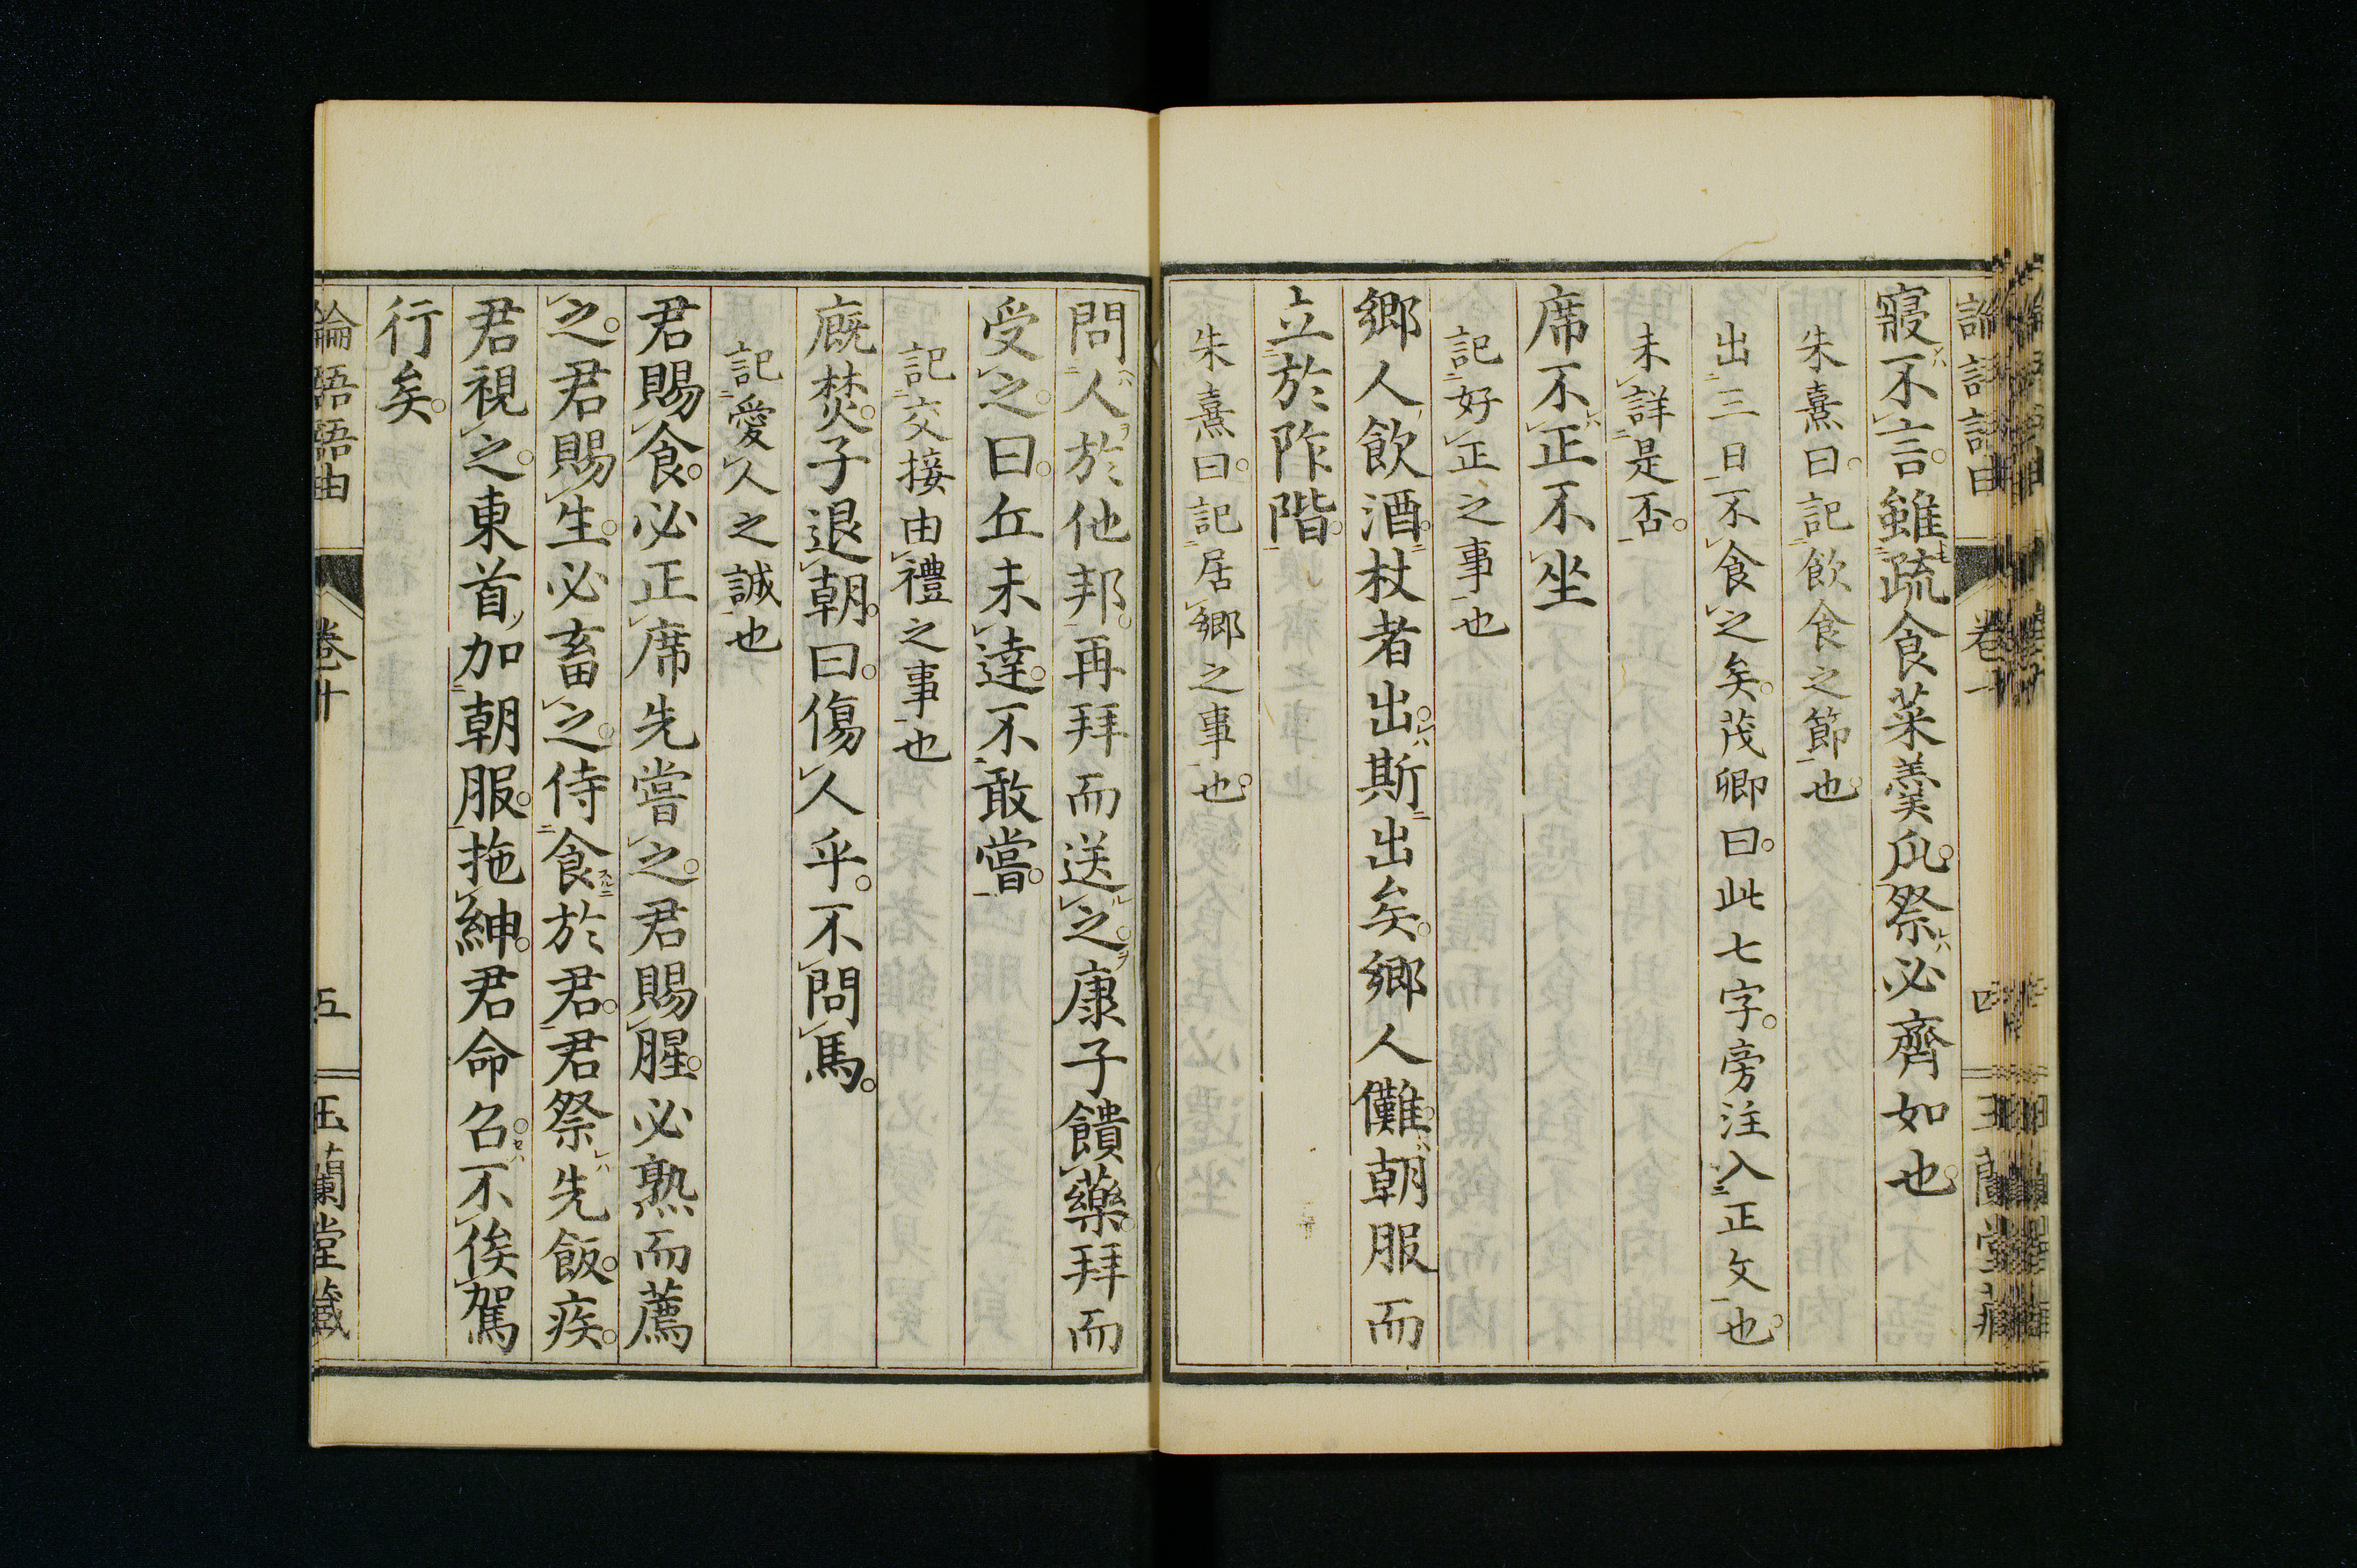 論語語由 卷十 四 玉蘭堂藏
寢不言。雖疏食菜羹瓜。祭必齊如也。
朱熹曰。記飲食之節也。
出三日不食之矣。茂卿曰。此七字。旁注入正文也。
未詳是否。
席不正不坐
記好正之事也
鄉人飲酒。杖者出。斯出矣。鄉人儺。朝服而
立於阼階。
朱熹曰。記居鄉之事也。
問人於他邦。再拜而送之。康子饋藥。拜而
受之。曰。丘未達。不敢嘗。
記交接由禮之事也
廐焚。子退朝。曰。傷人乎。不問馬。
記愛人之誠也
君賜食。必正席先嘗之。君賜腥。必熟而薦
之。君賜生。必畜之。侍食於君。君祭先飯。疾。
君視之。東首加朝服。拖紳。君命召。不俟駕
行矣。
論語語由 卷十 五 玉蘭堂藏